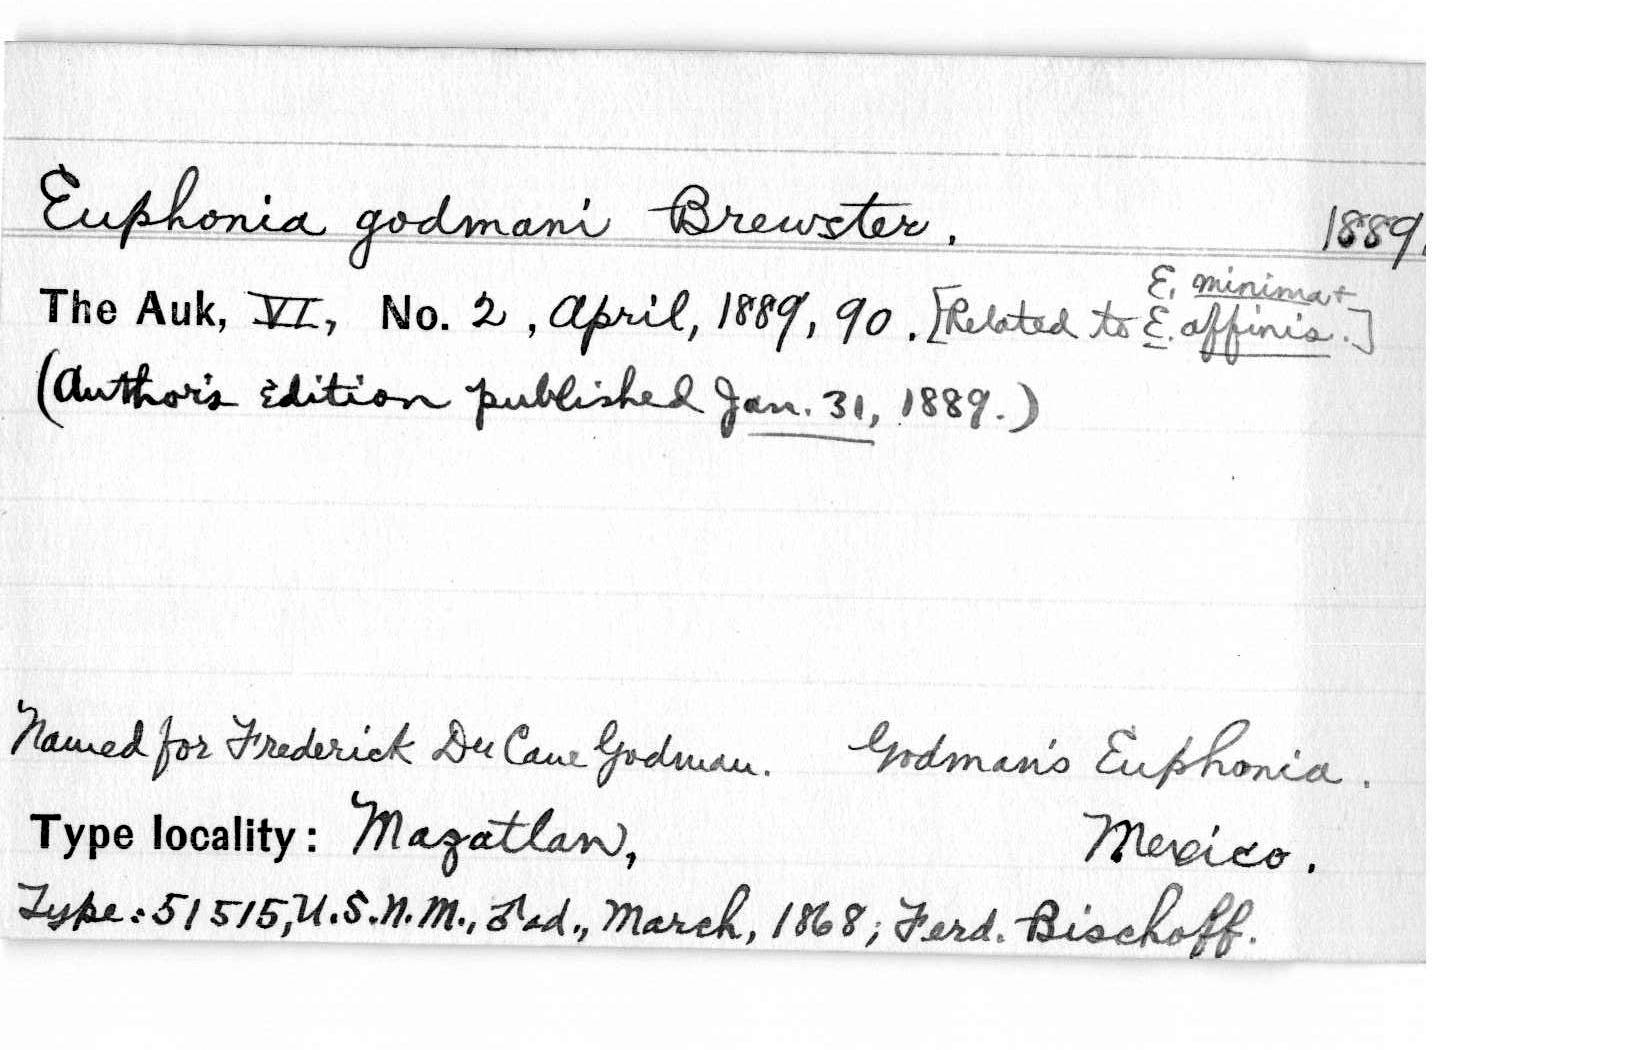 Euphonia godmani Brewster. 1889.
E. minima +
The Auk, VI, No. 2, April, 1889, 90. [Related to E. affinis.]
(Author's Edition published Jan. 31, 1889.)
Named for Frederick Du Cane Godman. Godman's Euphonia.
Type locality: Mazatlan, Mexico.
Type: 51515, U.S.N.M., ♂ ad., March, 1868; Ferd. Bischoff.